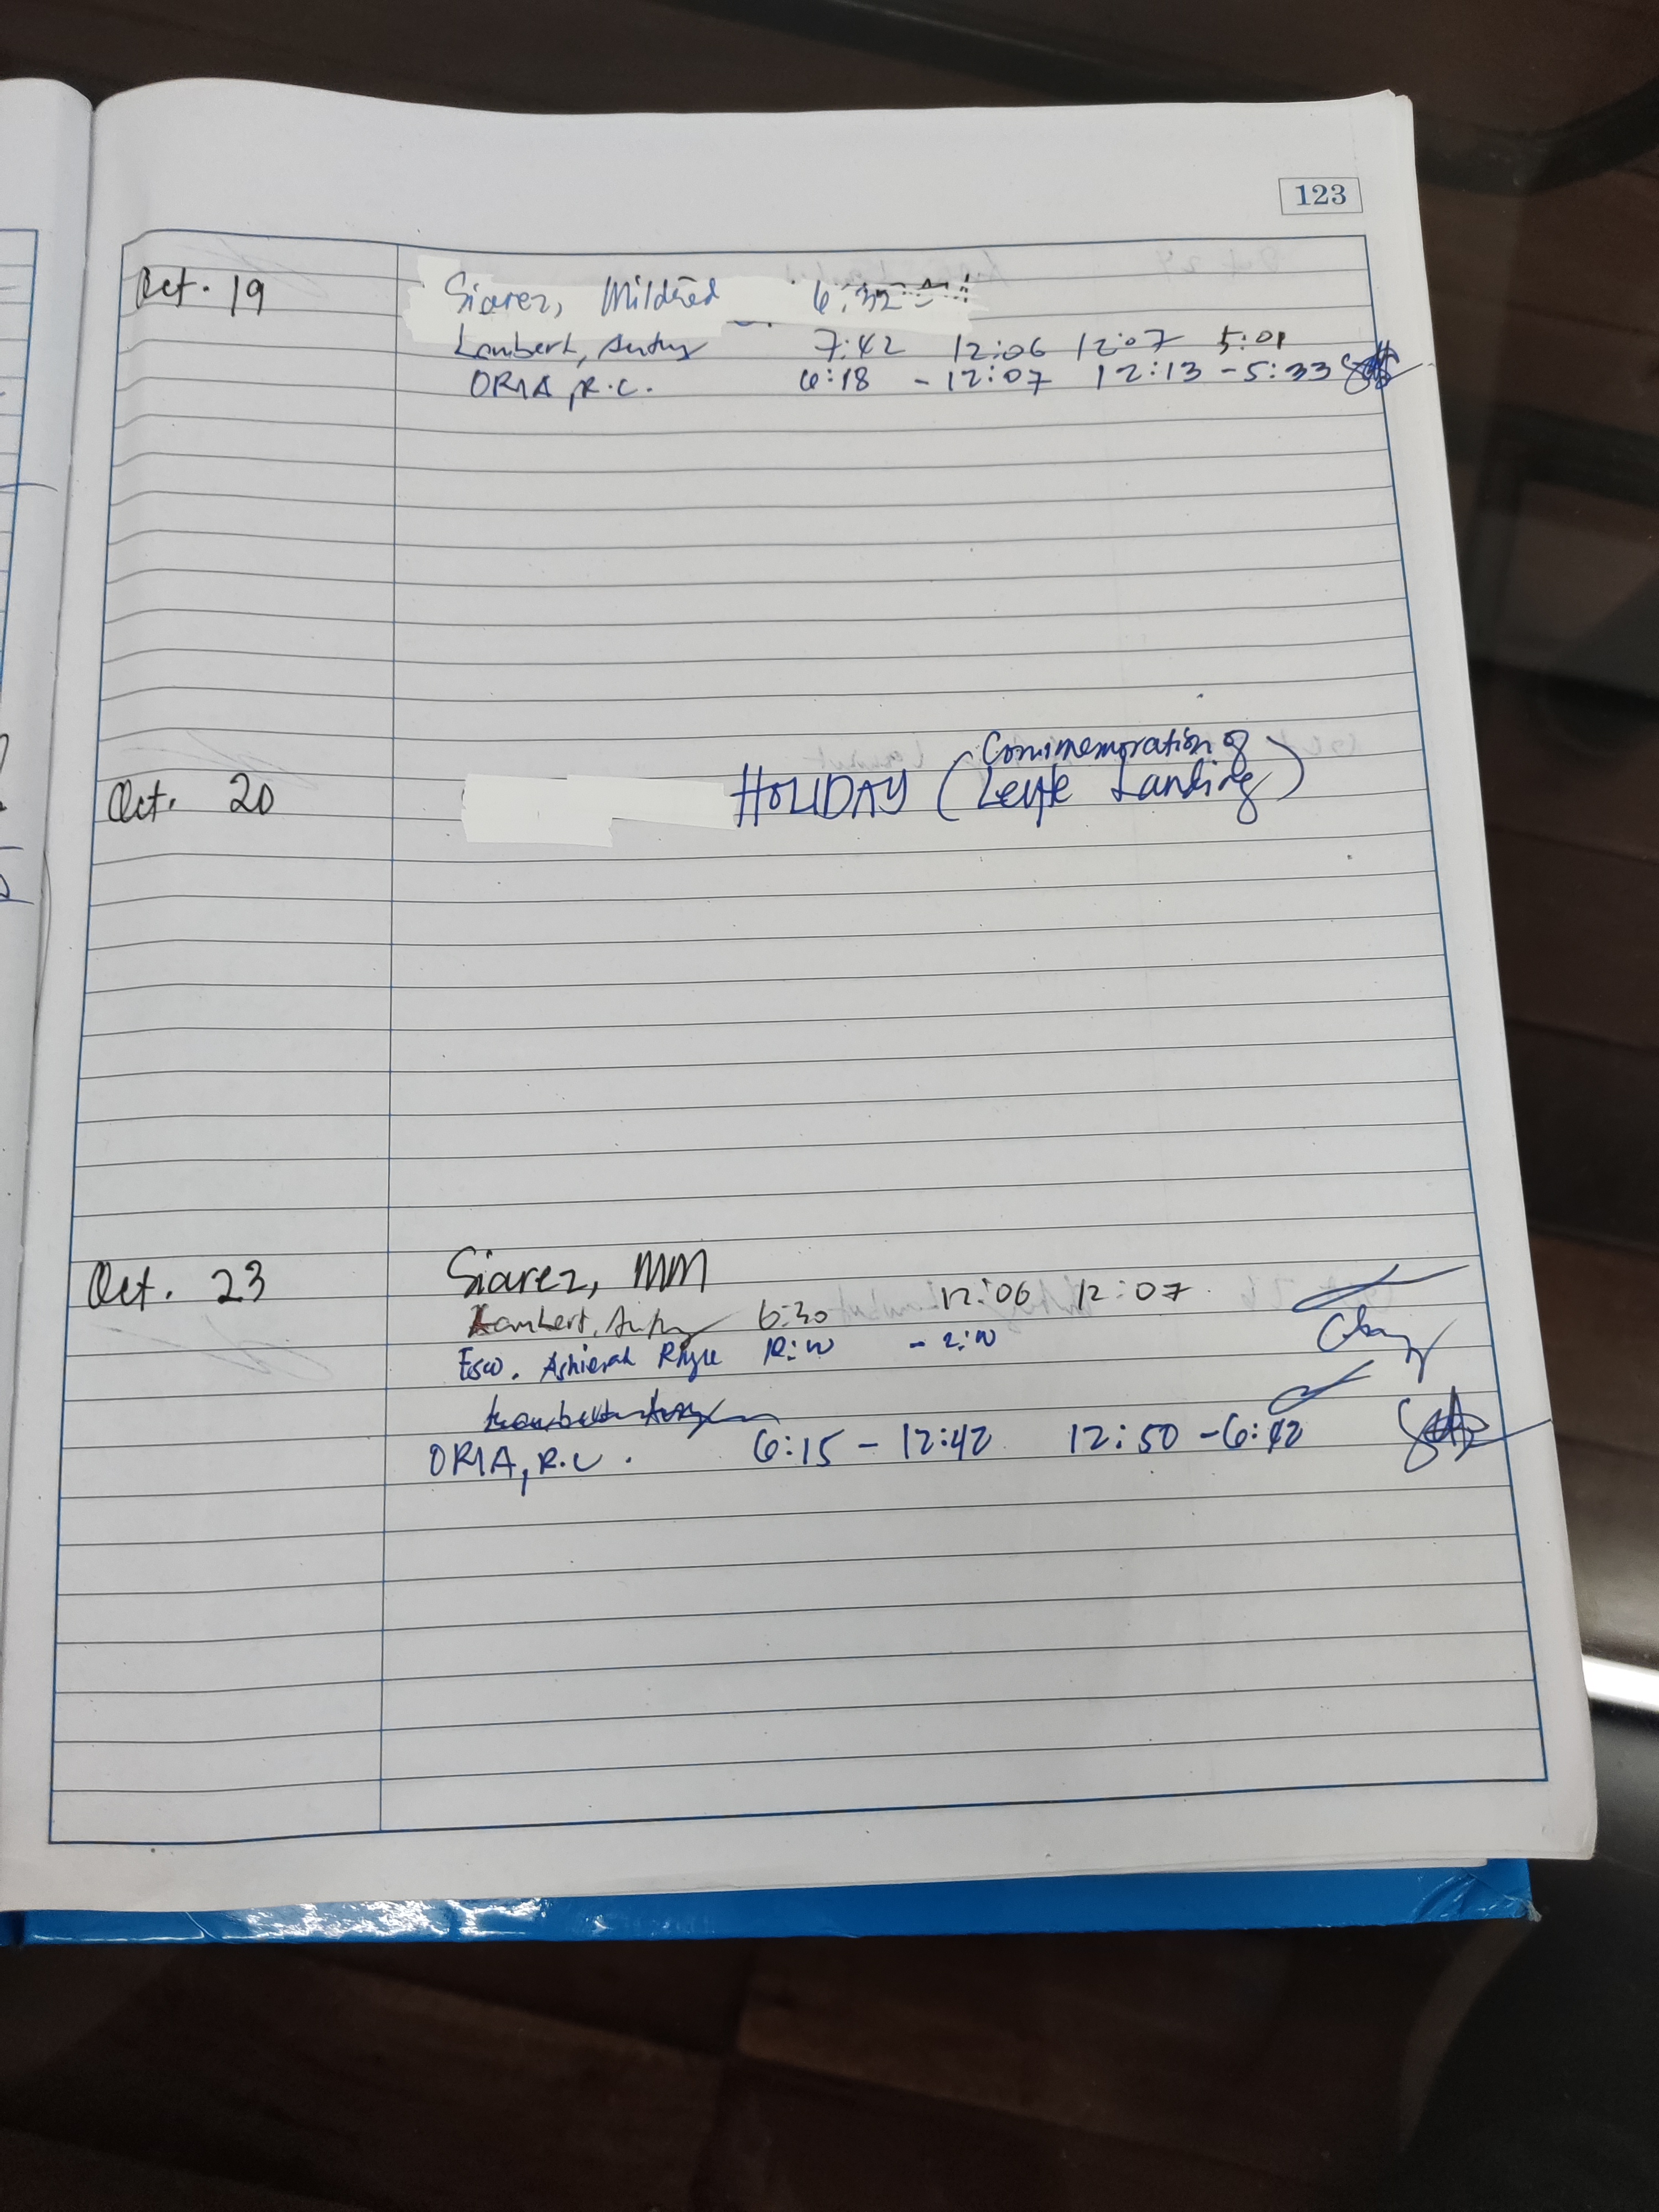 123
Oct. 19
Siarez, Mildred 6:32
Lambert, 7:42 12:06 12:07 5:01
ORIA, R.C. 6:18 - 12:07 12:13 - 5:33
Oct. 20
HOLIDAY (Commemoration of
Leyte Landing)
Oct. 23
Siarez, MM
Lambert, 6:30 12:06 12:07
Ashierah
ORIA, R.C. 6:15 - 12:42 12:50 - 6:42